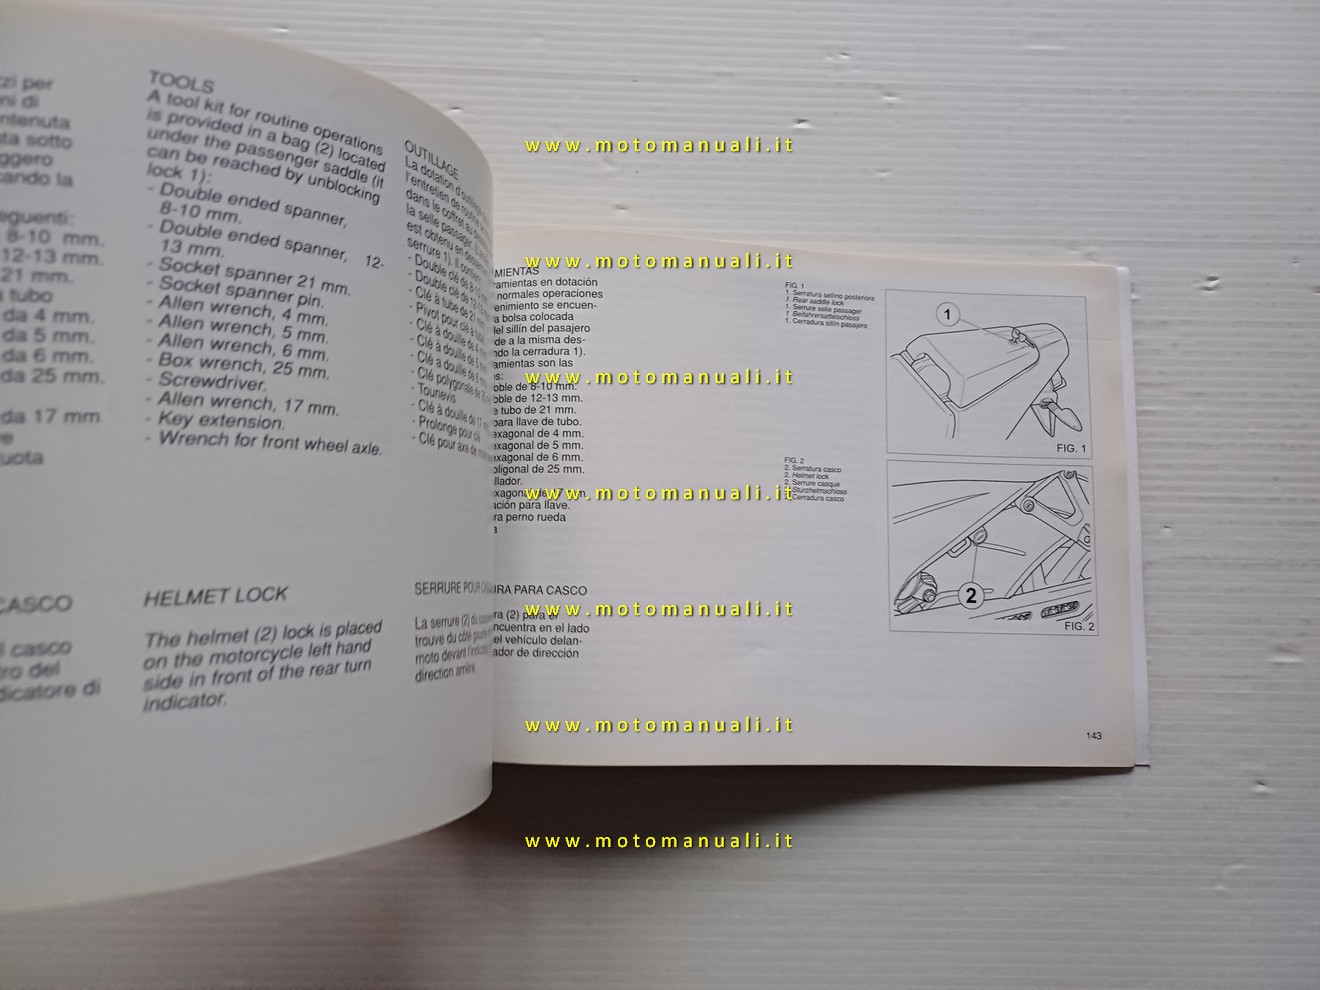 zzi per
ni di
ntenuta
ta sotto
ggero
cando la
eguenti:
8-10 mm.
12-13 mm.
21 mm.
tubo
da 4 mm.
da 5 mm.
da 6 mm.
da 25 mm.
da 17 mm
e
uota
CASCO
il casco
tro del
dicatore di
TOOLS
A tool kit for routine operations
is provided in a bag (2) located
under the passenger saddle (it
can be reached by unblocking
lock 1):
- Double ended spanner,
8-10 mm.
- Double ended spanner, 12-
13 mm.
- Socket spanner 21 mm.
- Socket spanner pin.
- Allen wrench, 4 mm.
- Allen wrench, 5 mm.
- Allen wrench, 6 mm.
- Box wrench, 25 mm.
- Screwdriver.
- Allen wrench, 17 mm.
- Key extension.
- Wrench for front wheel axle.
HELMET LOCK
The helmet (2) lock is placed
on the motorcycle left hand
side in front of the rear turn
indicator.
OUTILLAGE
La dotation d'outillage
l'entretien de routine
dans le coffret au
la selle passager.
est obtenu en
serrure 1). Il
- Double clé de 8-10
- Double clé de 12-13
- Clé à tube de 21
- Pivot pour clé à
- Clé à douille de 4
- Clé à douille de 5
- Clé à douille de 6
- Clé polygonale de
- Tounevis
- Clé à douille de 17
- Prolonge pour clé
- Clé pour axe de
SERRURE POUR
La serrure (2) du
trouve du côté gauche
moto devant
direction arrière.
MIENTAS
ramientas en dotación
normales operaciones
enimiento se encuen-
a bolsa colocada
del sillín del pasajero
de a la misma des-
ndo la cerradura 1).
amientas son las
s:
oble de 8-10 mm.
oble de 12-13 mm.
e tubo de 21 mm.
para llave de tubo.
exagonal de 4 mm.
exagonal de 5 mm.
exagonal de 6 mm.
oligonal de 25 mm.
illador.
exagonal de 17 mm.
ación para llave.
ra perno rueda
a
URA PARA CASCO
ra (2) para el
ncuentra en el lado
el vehículo delan-
ador de dirección
FIG. 1
1. Serratura sellino posteriore
1. Rear saddle lock
1. Serrure selle passager
1. Beifahrersattelschloss
1. Cerradura sillín pasajero
1
FIG. 1
FIG. 2
2. Serratura casco
2. Helmet lock
2. Serrure casque
2. Sturzhelmschloss
2. Cerradura casco
2
FIG. 2
143
www.motomanuali.it
www.motomanuali.it
www.motomanuali.it
www.motomanuali.it
www.motomanuali.it
www.motomanuali.it
www.motomanuali.it